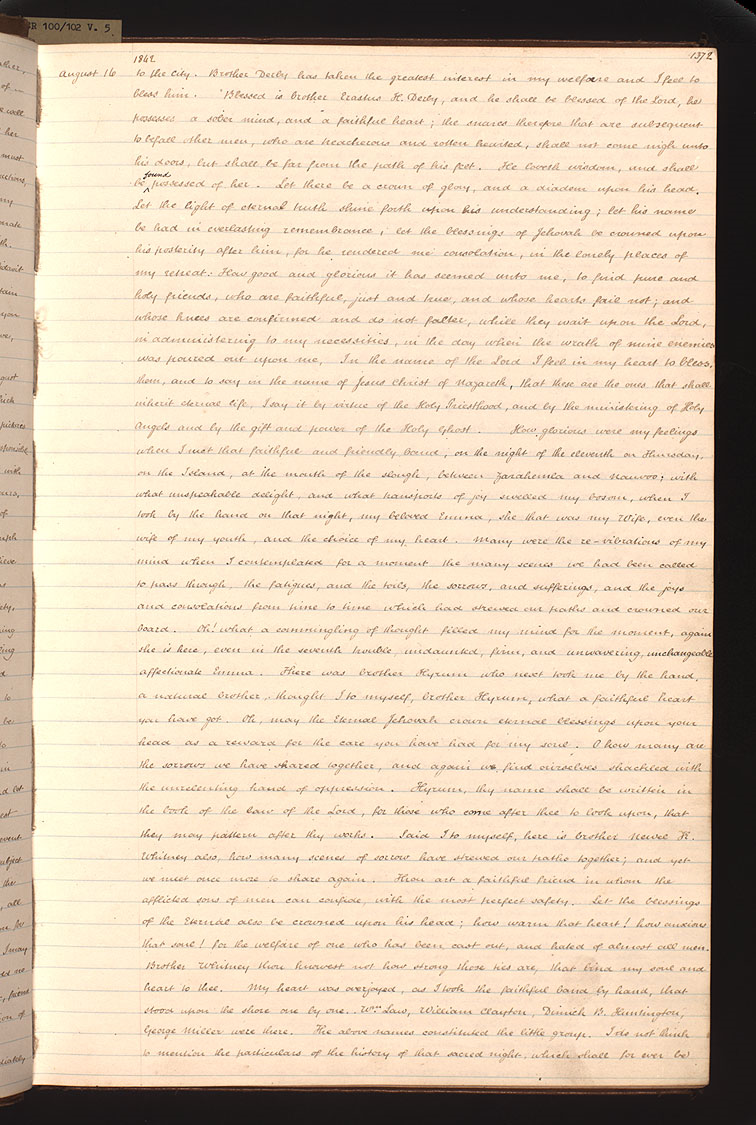 CR 100/102 V. 5
1842
1372
August 16 to the City. Brother Derby has taken the greatest interest in my welfare and I feel to
bless him. "Blessed is brother Erastus H. Derby, and he shall be blessed of the Lord, he
possesses a sober mind, and a faithful heart; the snares therefore that are subsequent
to befall other men, who are treacherous and rotten hearted, shall not come nigh unto
his doors, but shall be far from the path of his feet. He loveth wisdom, and shall
be found possessed of her. Let there be a crown of glory, and a diadem upon his head.
Let the light of eternal truth shine forth upon his understanding; let his name
be had in everlasting remembrance; let the blessings of Jehovah be crowned upon
his posterity after him, for he rendered me consolation, in the lonely places of
my retreat. How good and glorious it has seemed unto me, to find pure and
holy friends, who are faithful, just and true, and whose hearts fail not; and
whose knees are confirmed and do not falter, while they wait upon the Lord,
in administering to my necessities, in the day when the wrath of mine enemies
was poured out upon me. In the name of the Lord I feel in my heart to bless
them, and to say in the name of Jesus Christ of Nazareth, that these are the ones that shall
inherit eternal life, I say it by virtue of the Holy Priesthood, and by the ministering of Holy
Angels and by the gift and power of the Holy Ghost. How glorious were my feelings
when I met that faithful and friendly band; on the night of the eleventh on Thursday,
on the Island, at the mouth of the slough, between Zarahemla and Nauvoo; with
what unspeakable delight, and what transports of joy swelled my bosom, when I
took by the hand on that night, my beloved Emma, she that was my Wife, even the
wife of my youth, and the choice of my heart. Many were the re-vibrations of my
mind when I contemplated for a moment the many scenes we had been called
to pass through, the fatigues, and the toils, the sorrows, and sufferings, and the joys
and consolations from time to time which had strewed our paths and crowned our
board. Oh! what a commingling of thought filled my mind for the moment, again
she is here, even in the seventh trouble, undaunted, firm, and unwavering, unchangeable
affectionate Emma. There was brother Hyrum who next took me by the hand,
a natural brother, thought I to myself, brother Hyrum, what a faithful heart
you have got. Oh, may the Eternal Jehovah crown eternal blessings upon your
head as a reward for the care you have had for my soul. O how many are
the sorrows we have shared together, and again we find ourselves shackled with
the unrelenting hand of oppression. Hyrum, thy name shall be written in
the book of the law of the Lord, for those who come after thee to look upon, that
they may pattern after thy works. Said I to myself, here is brother Newel K.
Whitney also, how many scenes of sorrow have strewed our paths together; and yet
we meet once more to share again. Thou art a faithful friend in whom the
afflicted sons of men can confide, with the most perfect safety. Let the blessings
of the Eternal also be crowned upon his head; how warm that heart! how anxious
that soul! for the welfare of one who has been cast out, and hated of almost all men.
Brother Whitney thou knowest not how strong those ties are, that bind my soul and
heart to thee. My heart was overjoyed, as I took the faithful band by hand, that
stood upon the shore one by one. Wm. Law, William Clayton, Dimick B. Huntington,
George Miller were there. The above names constituted the little group. I do not think
to mention the particulars of the history of that sacred night, which shall for ever be